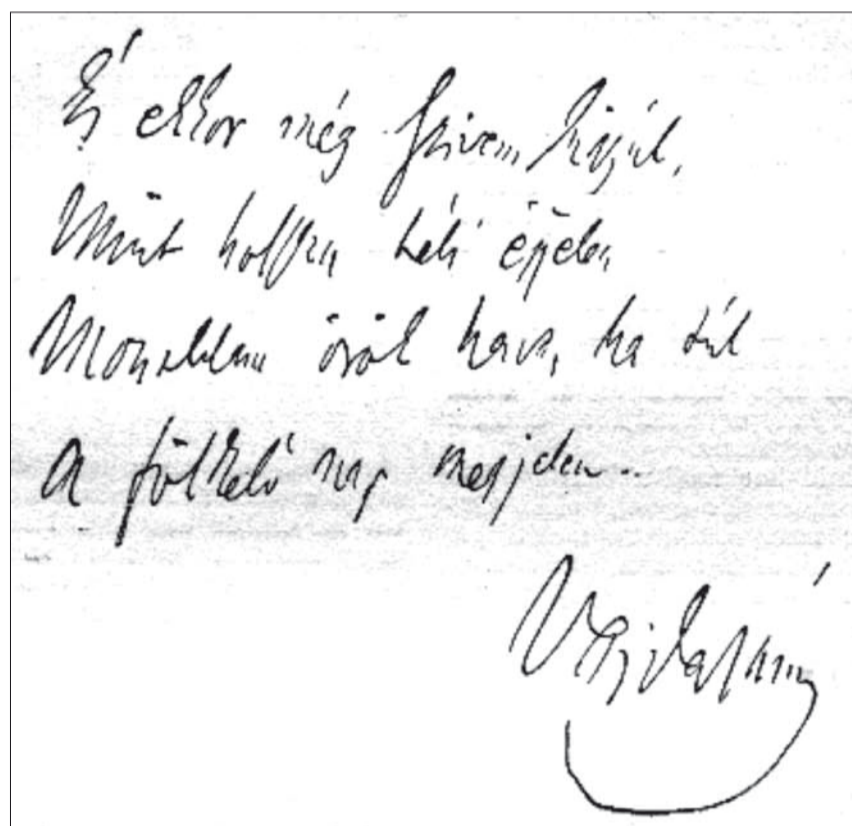 És ekkor még szivem kigyúl,
Mint hosszu téli éjjelen
Montblanc örök hava, ha túl
A fölkelő nap megjelen...
Vajda János